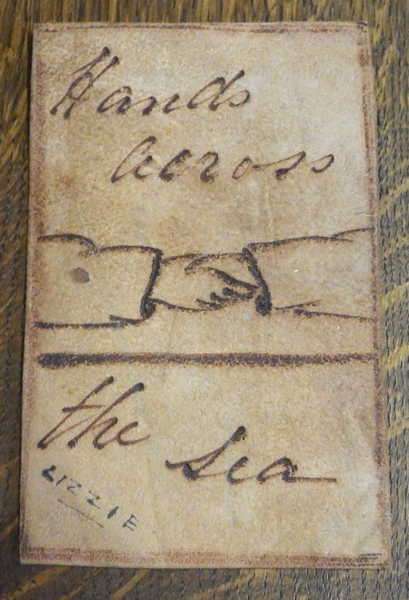 Hands
across
the sea
LIZZIE